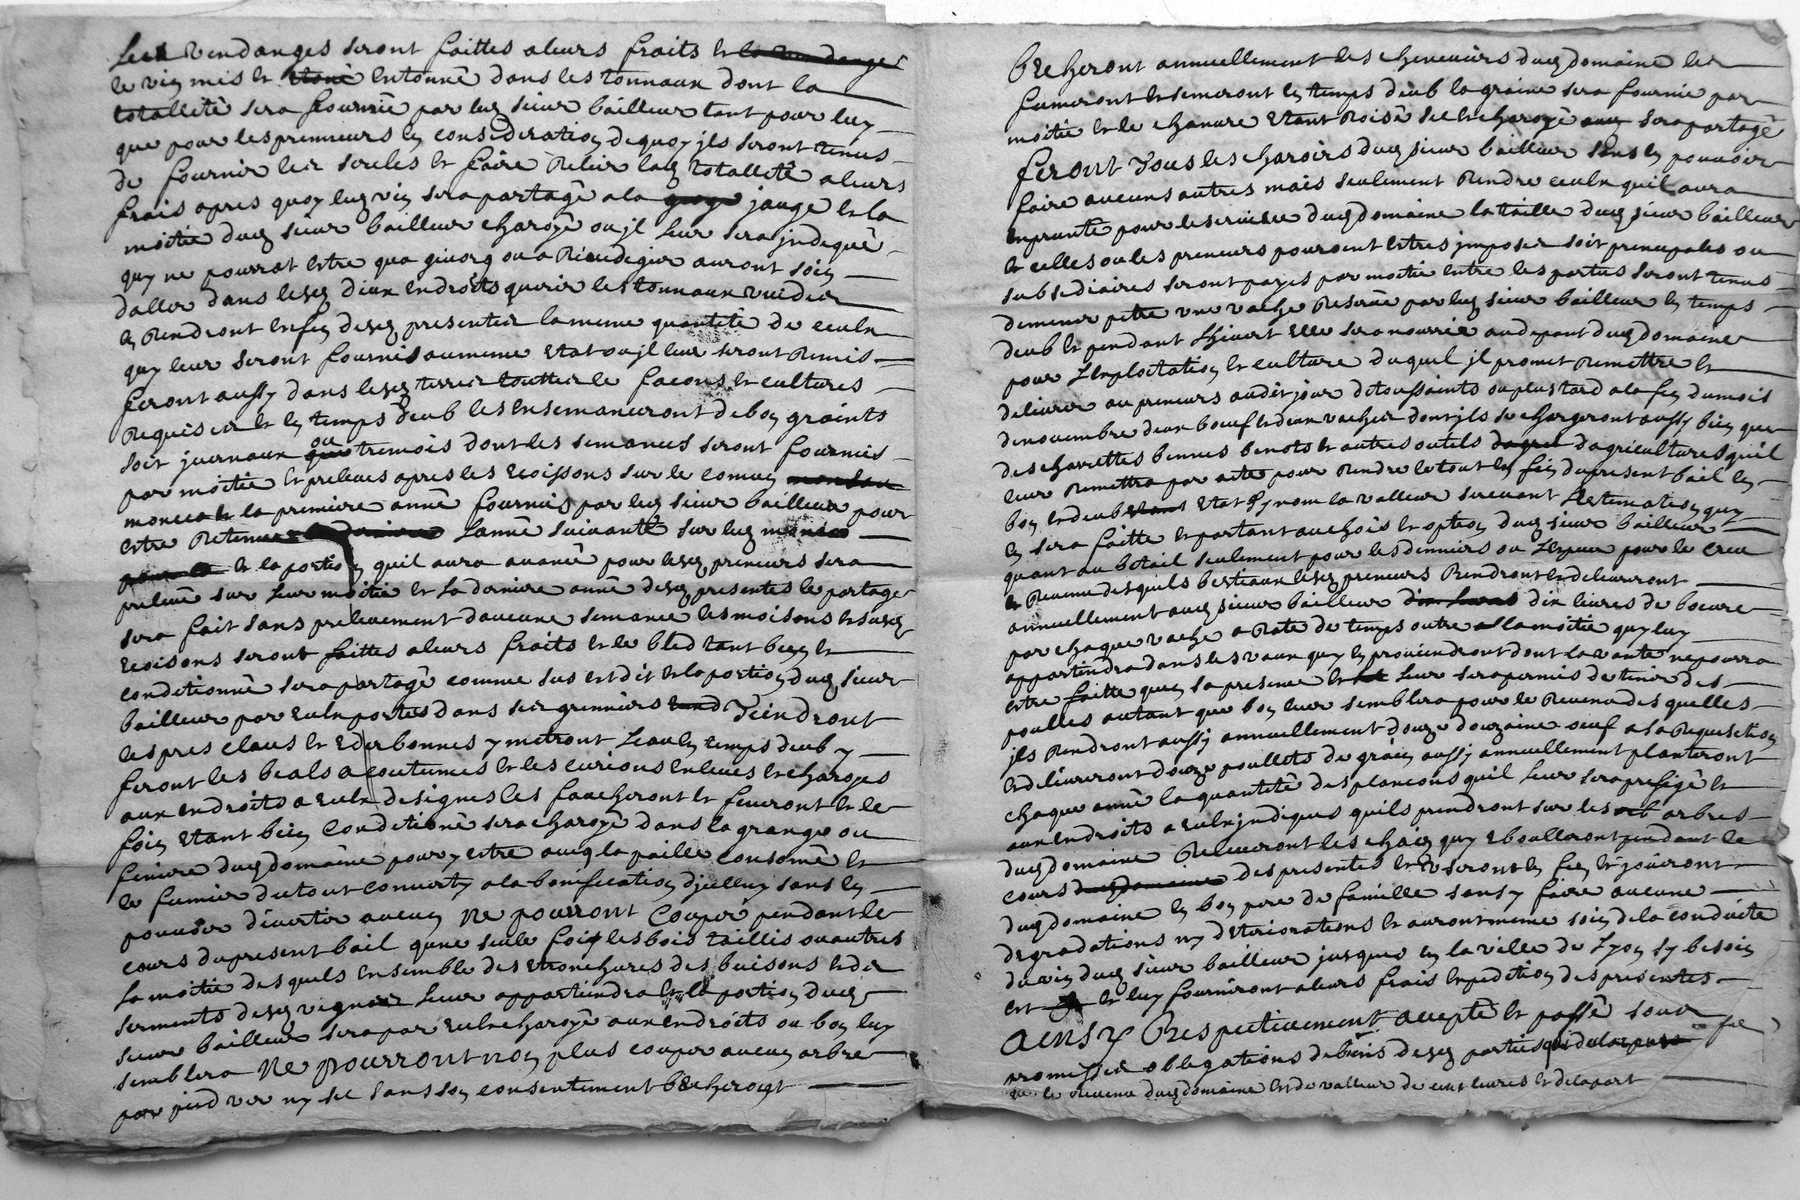 Les vendanges seront faittes aleurs fraits et la vendange
le vin mis et entonné dans les tonnaux dont la
totallité sera fournie par led sieur bailleur tant pour luy
que pour les preneurs en consideration dequoy jls seront tenus
de fournir les sercles et faire relier lad totallité aleurs
frais apres quoy led vin sera partagé a la jauge et la
moitié dud sieur bailleur charoyé ou jl leur sera jndiqué
quy ne pourrat estre qua givors ou a Rivedegier auront soin
daller dans lesd deux endroits querir les tonnaux vuides
et Rendront en fin desd presentes la meme quantité de ceulx
quy leur seront fournis au meme etat ou jl leur seront Remis
feront aussy dans lesd terres touttes le facons et cultures
Requises et en temps deub les ensemanceront de bon graints
soit juernaux ou tremois dont les semances seront fournies
par moitié et prelevés apres les recoissons sur le comun
monceau la premiere année fournis par led sieur bailleur pour
estre Retenue lannée suivante sur led monceau
et la portion quil aura avancé pour lesd preneurs sera
prelevé sur leur moitié et la derniere année desd presentes le partage
sera fait sans prelevement daucune semance les moisons et susd
recoisons seront faittes aleurs fraits et le bled tant bien et
conditionné sera partagé comme sus est dit et la portion dud sieur
bailleur par eulx portés dans ses grenniers Teindront
les pres claus et esterbonnes y metront leau en temps deub y
feront les beals acoutumés et les curions enlevés et charoyés
aux endroits a eulx designés les faucheront et feneront et le
foin etant bien Conditioné sera charoyé dans la grange ou
feniere dud domaine pour y estre avec la paille consomé et
le fumier du tout converty a la bonification djcelluy sans en
pouvoir divertir aucun Ne pourront Couper pendant le
cours du present bail qune seule fois les bois taillis ou autres
la moitié desquels ensemble des etronchures des buisons et des
serments desd vignes leur appartiendra et la portion dud
sieur bailleur sera par eulx charoyé aux endroits ou bon luy
semblera Ne pourront non plus couper aucun arbre
par pied ver ny sec sans son consentement becheront
Becheront annuellement les cheneviers dud domaine les
fumeront et semeront en temps deub la graine sera fournie par
moitié et le chanvre etant Roisé sec et charoyé sera partagé
feront Tous les charoirs dud sieur bailleur sans en pouvoir
faire aucuns autres mais seulement Rendre ceulx quil aura
emprunté pour le service dud domaine la taille dud sieur bailleur
et celles ou les preneurs pouroient estres jmposés soit principales ou
subsediaires seront payés par moitié entre les parties seront tenus
de mener petre une vache Reservée par led sieur bailleur en temps
deub et pendant lhivert elle sera nourrie au depant dud domaine
pour lexploitation et culture duquel jl promet Remettre et
delivrer au preneurs audit jour detoussaints ou plus tard a la fin du mois
de novembre deux boeufs et deux vaches dont jls se chargeront aussy bien que
des charettes bennes benots et autres outils dagriculture quil
leur Remettra par acte pour Rendre le tout en fin du present bail en
bon et deub etat sy nom la valleur suivant lestimation quy
en sera faitte et partant au chois et option dud sieur bailleur
quant au betail seulement pour les denniers ou lespece pour le creu
et Revenu desquels bestiaux lesd preneurs Rendront et delivreront
annuellement aud sieur bailleur dix livres de beure
par chaque vache a Rate de temps outre la moitié quy luy
appartiendra dans les vaux quy en proviendront dont la vante ne pourra
estre faitte quen sa presence et leur sera permis de tenir des
poulles autant que bon leur semblera pour le Revenu des quelles
jls Rendront aussy annuellement douze douzaine oeuf a sa Requisition
et delivreront douze poullets de grain aussy annuellement planteront
chaque année la quantité des plancons quil leur sera prefigé et
aux endroits a eulx jndiqués quils prendront sur les arbres
dud domaine Releveront les chais quy ebouleront pendant le
cours des presentes et useront en fin et jouiront
dud domaine en bon pere de famille sans y faire aucune
degradations ny deteriorations et auront meme soin de la conduite
du vin dud sieur bailleur jusques en la ville de Lyon sy besoin
est et luy fourniront aleurs frais expedition des presentes
Ainsy Respectivement accepté et passé sous
promesses obligations de biens desd parties
et le Revenu dud domaine est de valleur de cent livres et de la part